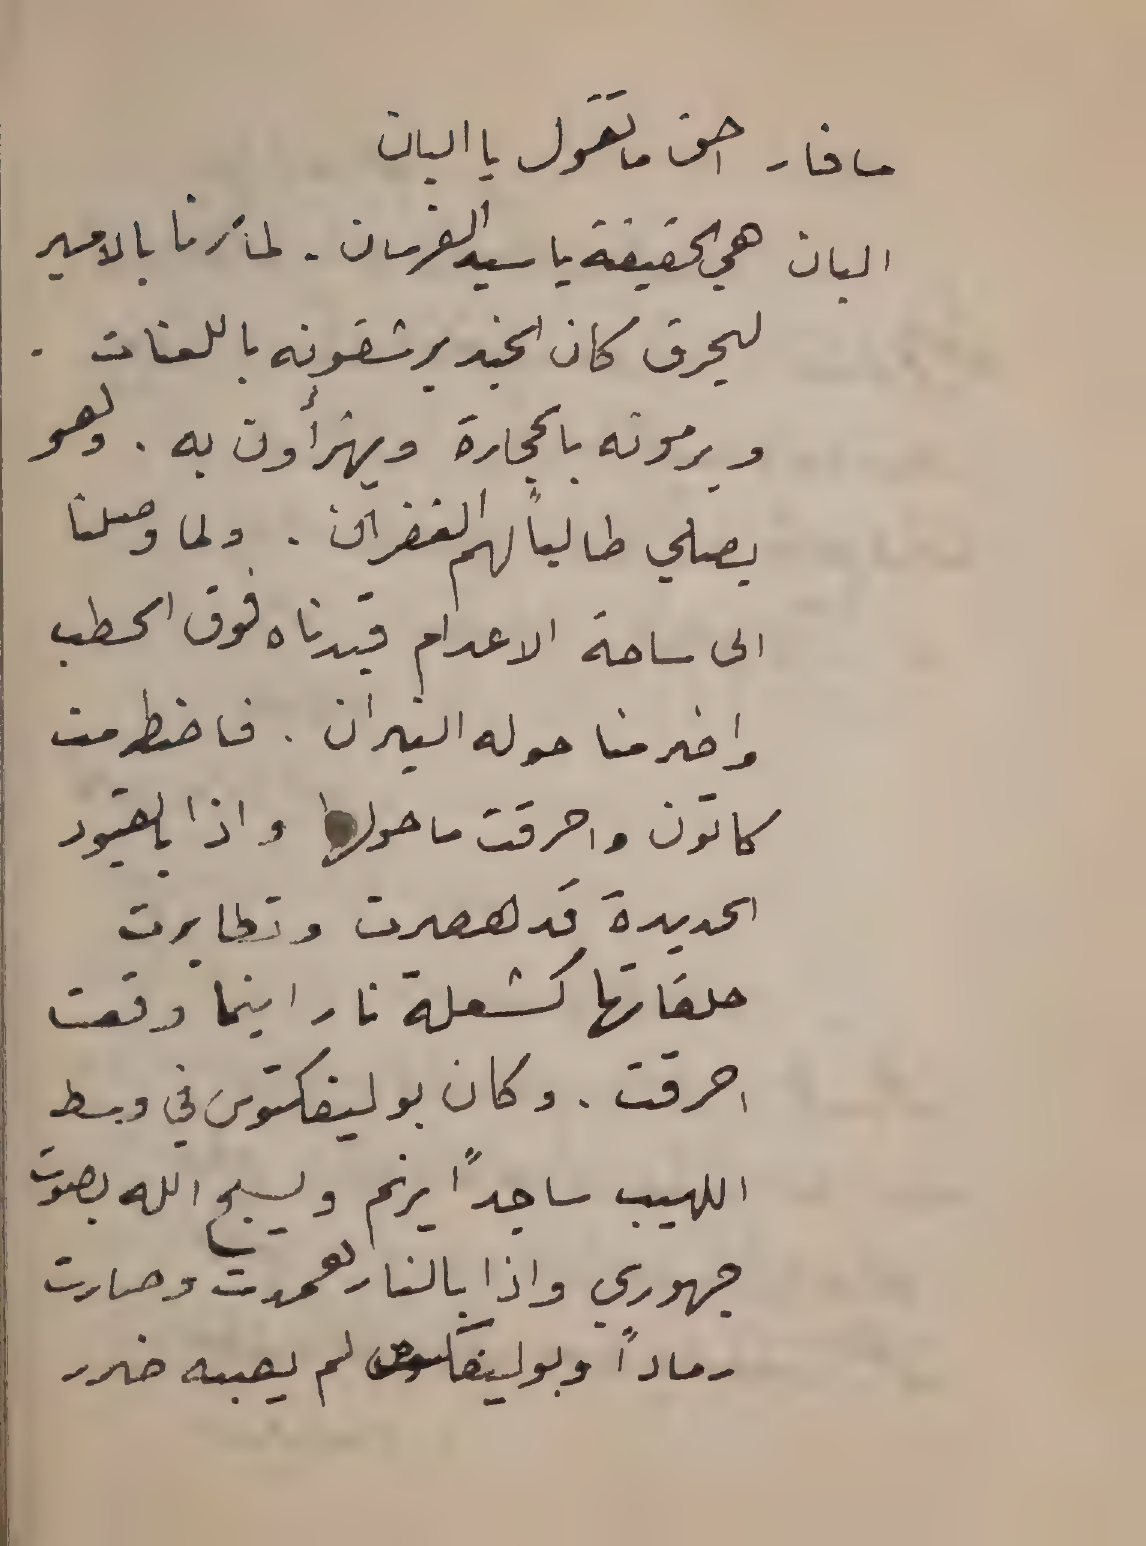 مافار احق ما تقول يا البان
البان هي الحقيقة يا سيد الفرسان . لما أمرنا بالامير
ليحرق كان الجند يرشقونه باللعنات .
ويرمونه بالحجارة ويهزأون به . وهو
يصلي طالباً لهم الغفران . ولما وصلنا
الى ساحة الاعدام قيدناه فوق الحطب
واضرمنا حوله النيران . فاضطرمت
كاتون واحرقت ما حولها واذا بالقيود
الحديدة قد هصرت وتطايرت
حلقاتها كشعلة نار اينما وقعت
احرقت . وكان بوليفكتوس في وسط
اللهيب ساجداً يرنم ويسبح الله بصوت
جهوري واذا بالنار همدت وصارت
رماداً وبوليفكتوس لم يصبه ضرر